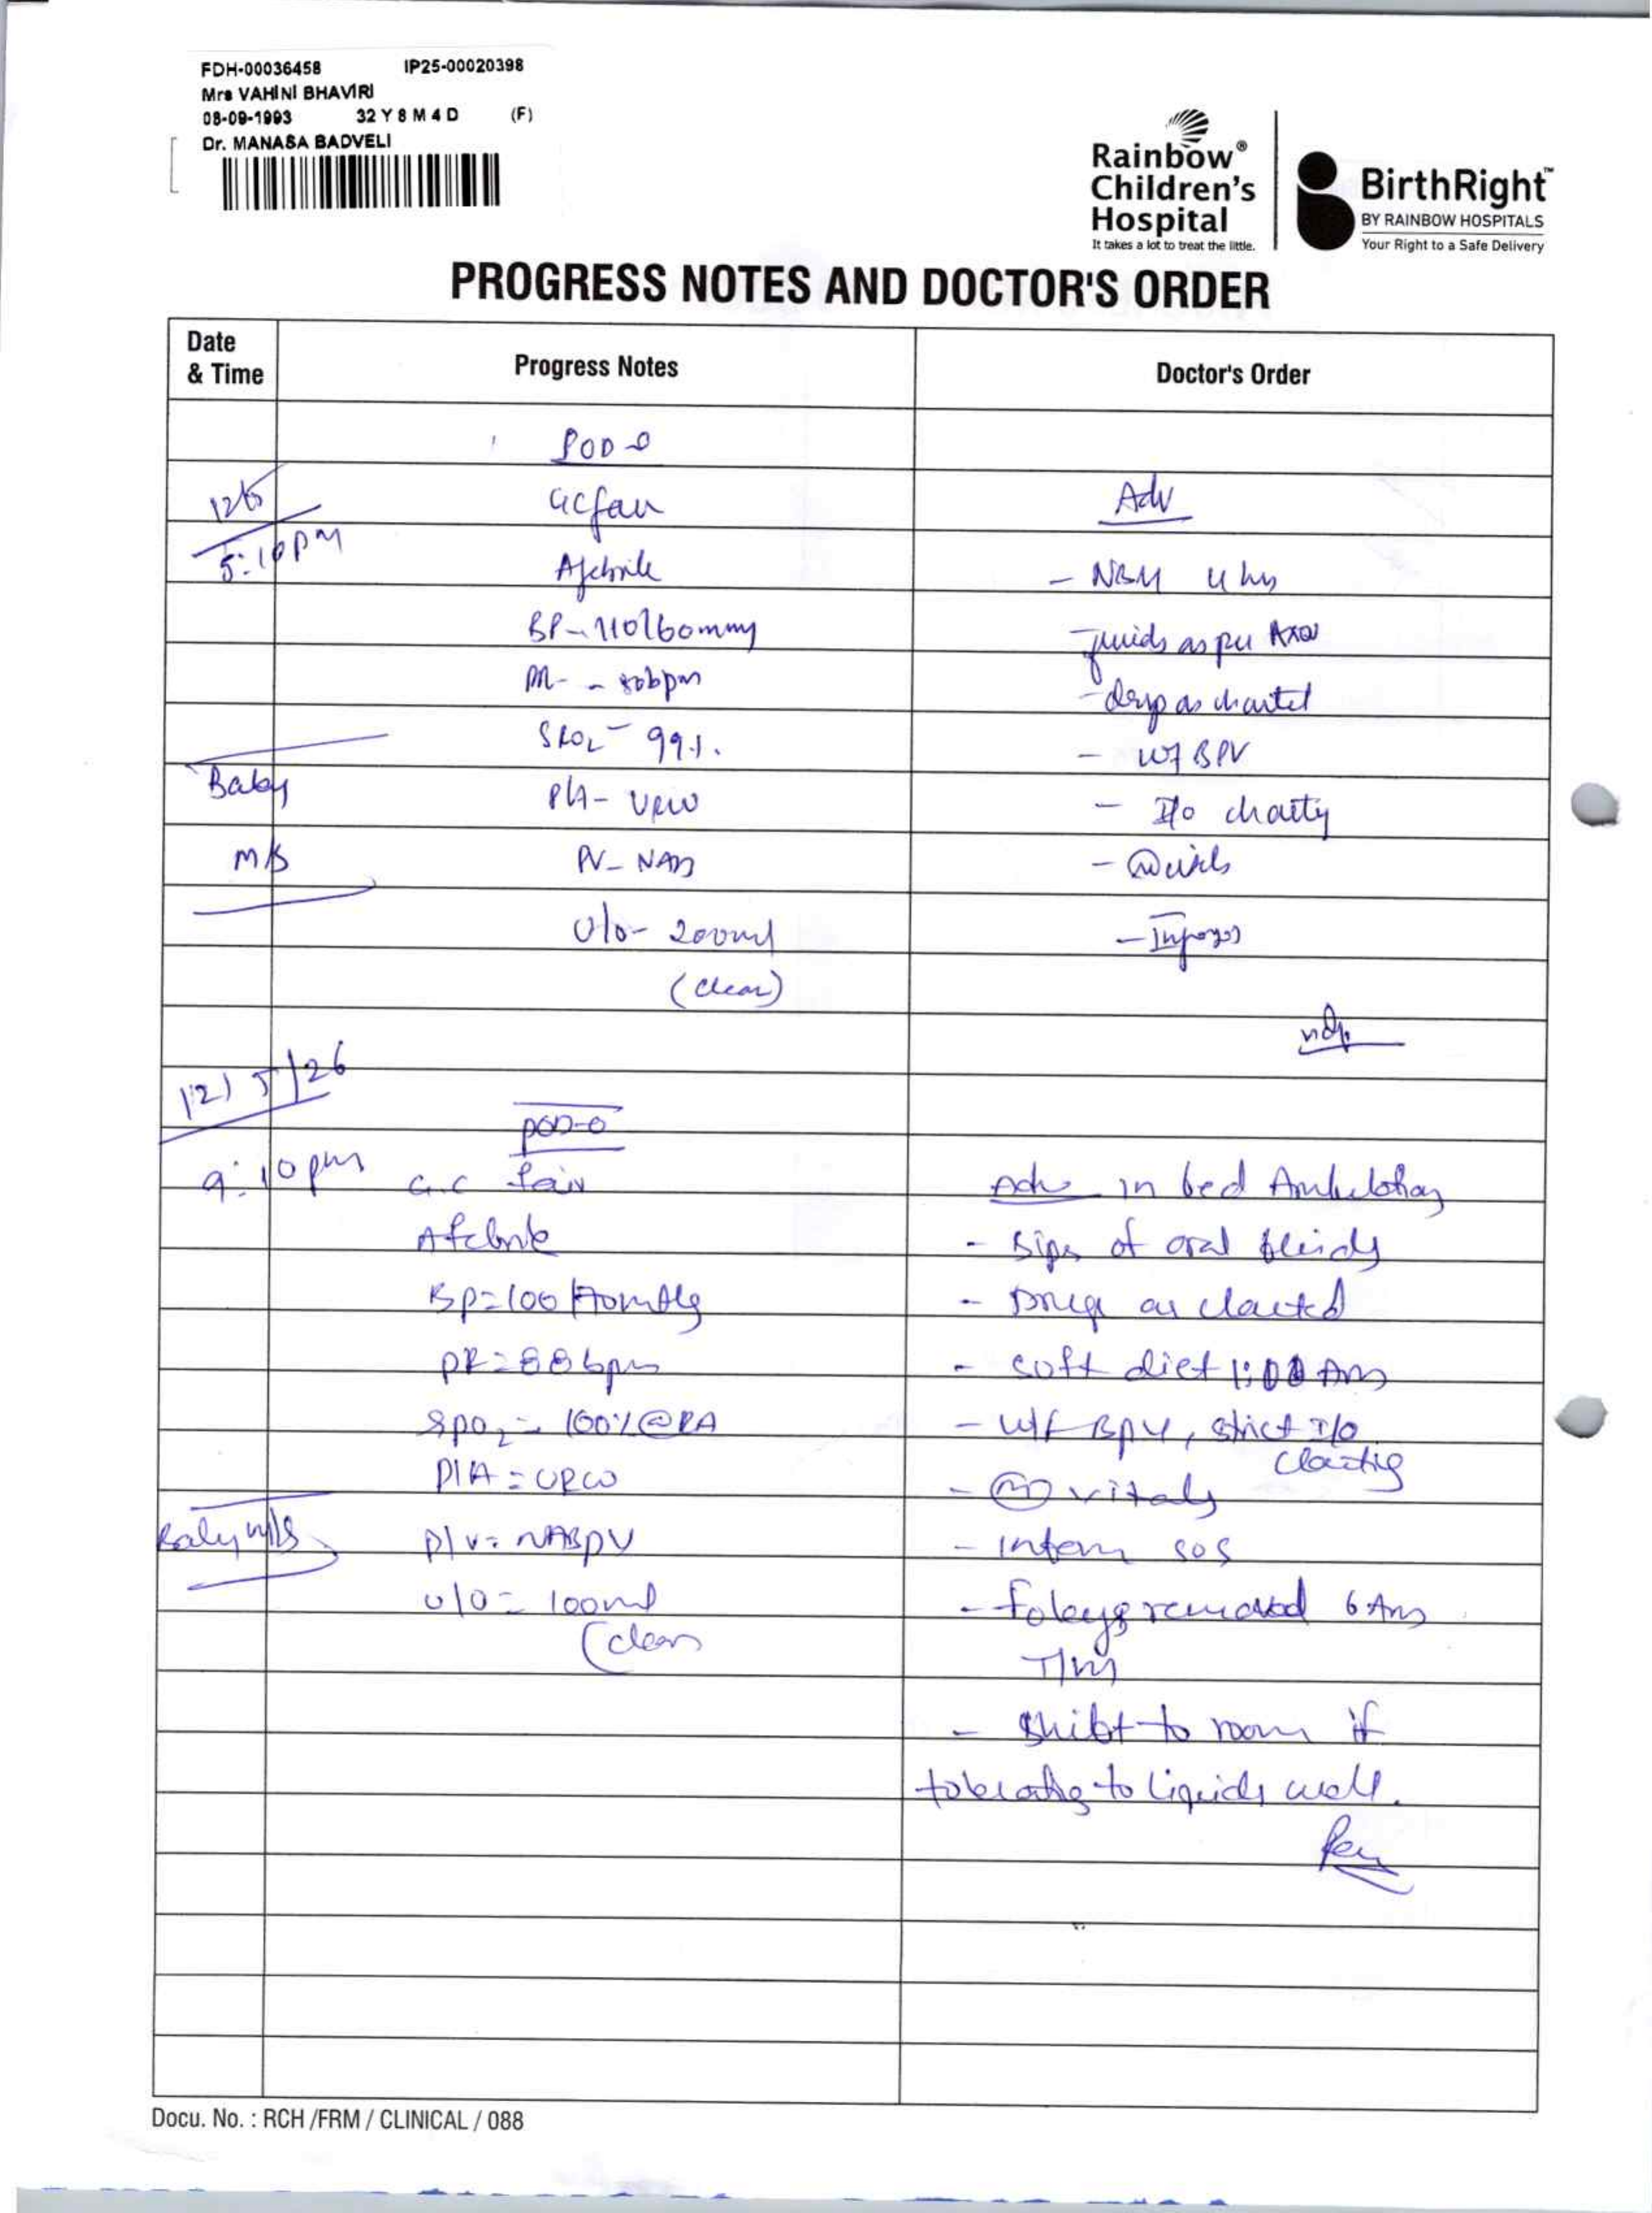 FDH-00036458 IP25-00020398
Mrs VAHINI BHAVIRI
08-09-1993 32 Y 8 M 4 D (F)
Dr. MANASA BADVELI
Rainbow®
Children's
Hospital
It takes a lot to treat the little.
BirthRight™
BY RAINBOW HOSPITALS
Your Right to a Safe Delivery
PROGRESS NOTES AND DOCTOR'S ORDER
Date
& Time
Progress Notes
Doctor's Order
POD-0
12/5
GC fair
Adv
5:10pm
Afebrile
- NBM 4 hrs
BP- 110/60mmHg
fluids as per
PR- - 80bpm
- drugs as charted
SPO2 - 99%.
- W/f BPV
Baby
P/A- URW
- I/o charting
M/S
PV- NAB
- vitals
U/o- 200ml
- Inform SOS
(clear)
12/5/26
POD-0
9:10pm
G.C fair
Adv in bed Ambulation
Afebrile
- Sips of oral fluids
BP=100/70mmHg
- Drugs as charted
PR=88bpm
- soft diet 1:00 Am
SpO2 = 100%@RA
- W/f BPV, strict I/o
charting
P/A = URW
- (M) vitals
Baby M/S
P/V= NABPV
- inform SOS
U/O= 100ml
- Foleys removed 6 Am
(clear
T/m
- Shift to room if
tolerating to liquids well.
Docu. No. : RCH /FRM / CLINICAL / 088